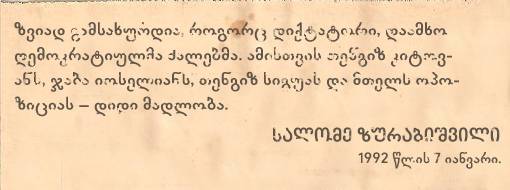 ზვიად გამსახურდია, როგორც დიქტატორი, დაამხო
დემოკრატიულმა ძალებმა. ამისთვის თენგიზ კიტოვ-
ანს, ჯაბა იოსელიანს, თენგიზ სიგუას და მთელს ოპო-
ზიციას — დიდი მადლობა.
ᲡᲐᲚᲝᲛᲔ ᲖᲣᲠᲐᲑᲘᲨᲕᲘᲚᲘ
1992 წლის 7 იანვარი.